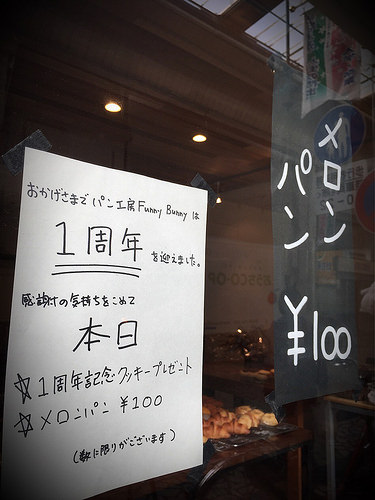 おかげさまで パン工房 Funny Bunny は
1周年 を迎えました。
感謝の気持ちをこめて
本日
☆1周年記念クッキープレゼント
☆メロンパン ¥100
(数に限りがございます)
メロン
パン
¥100